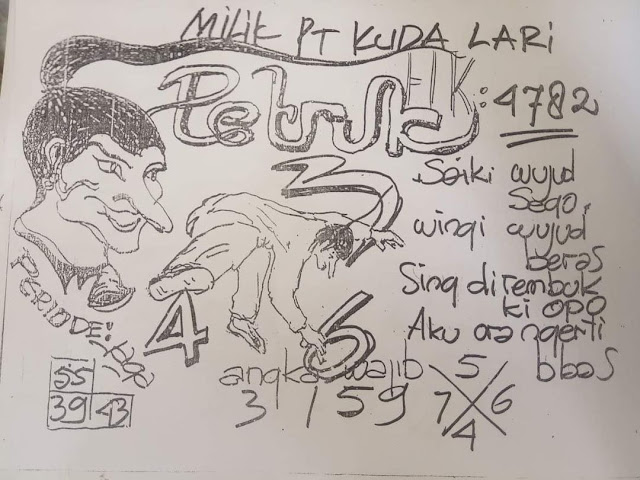 MILIK PT KUDA LARI
Petruk
: 4782
3
Saiki wujud
Sego,
wingi wujud
beras
Sing dirembuk
ki opo
Aku ora ngerti
bbas
PERIODE!
4
6
angka wajib
3 1 59
5
7 6
4
55
39 43